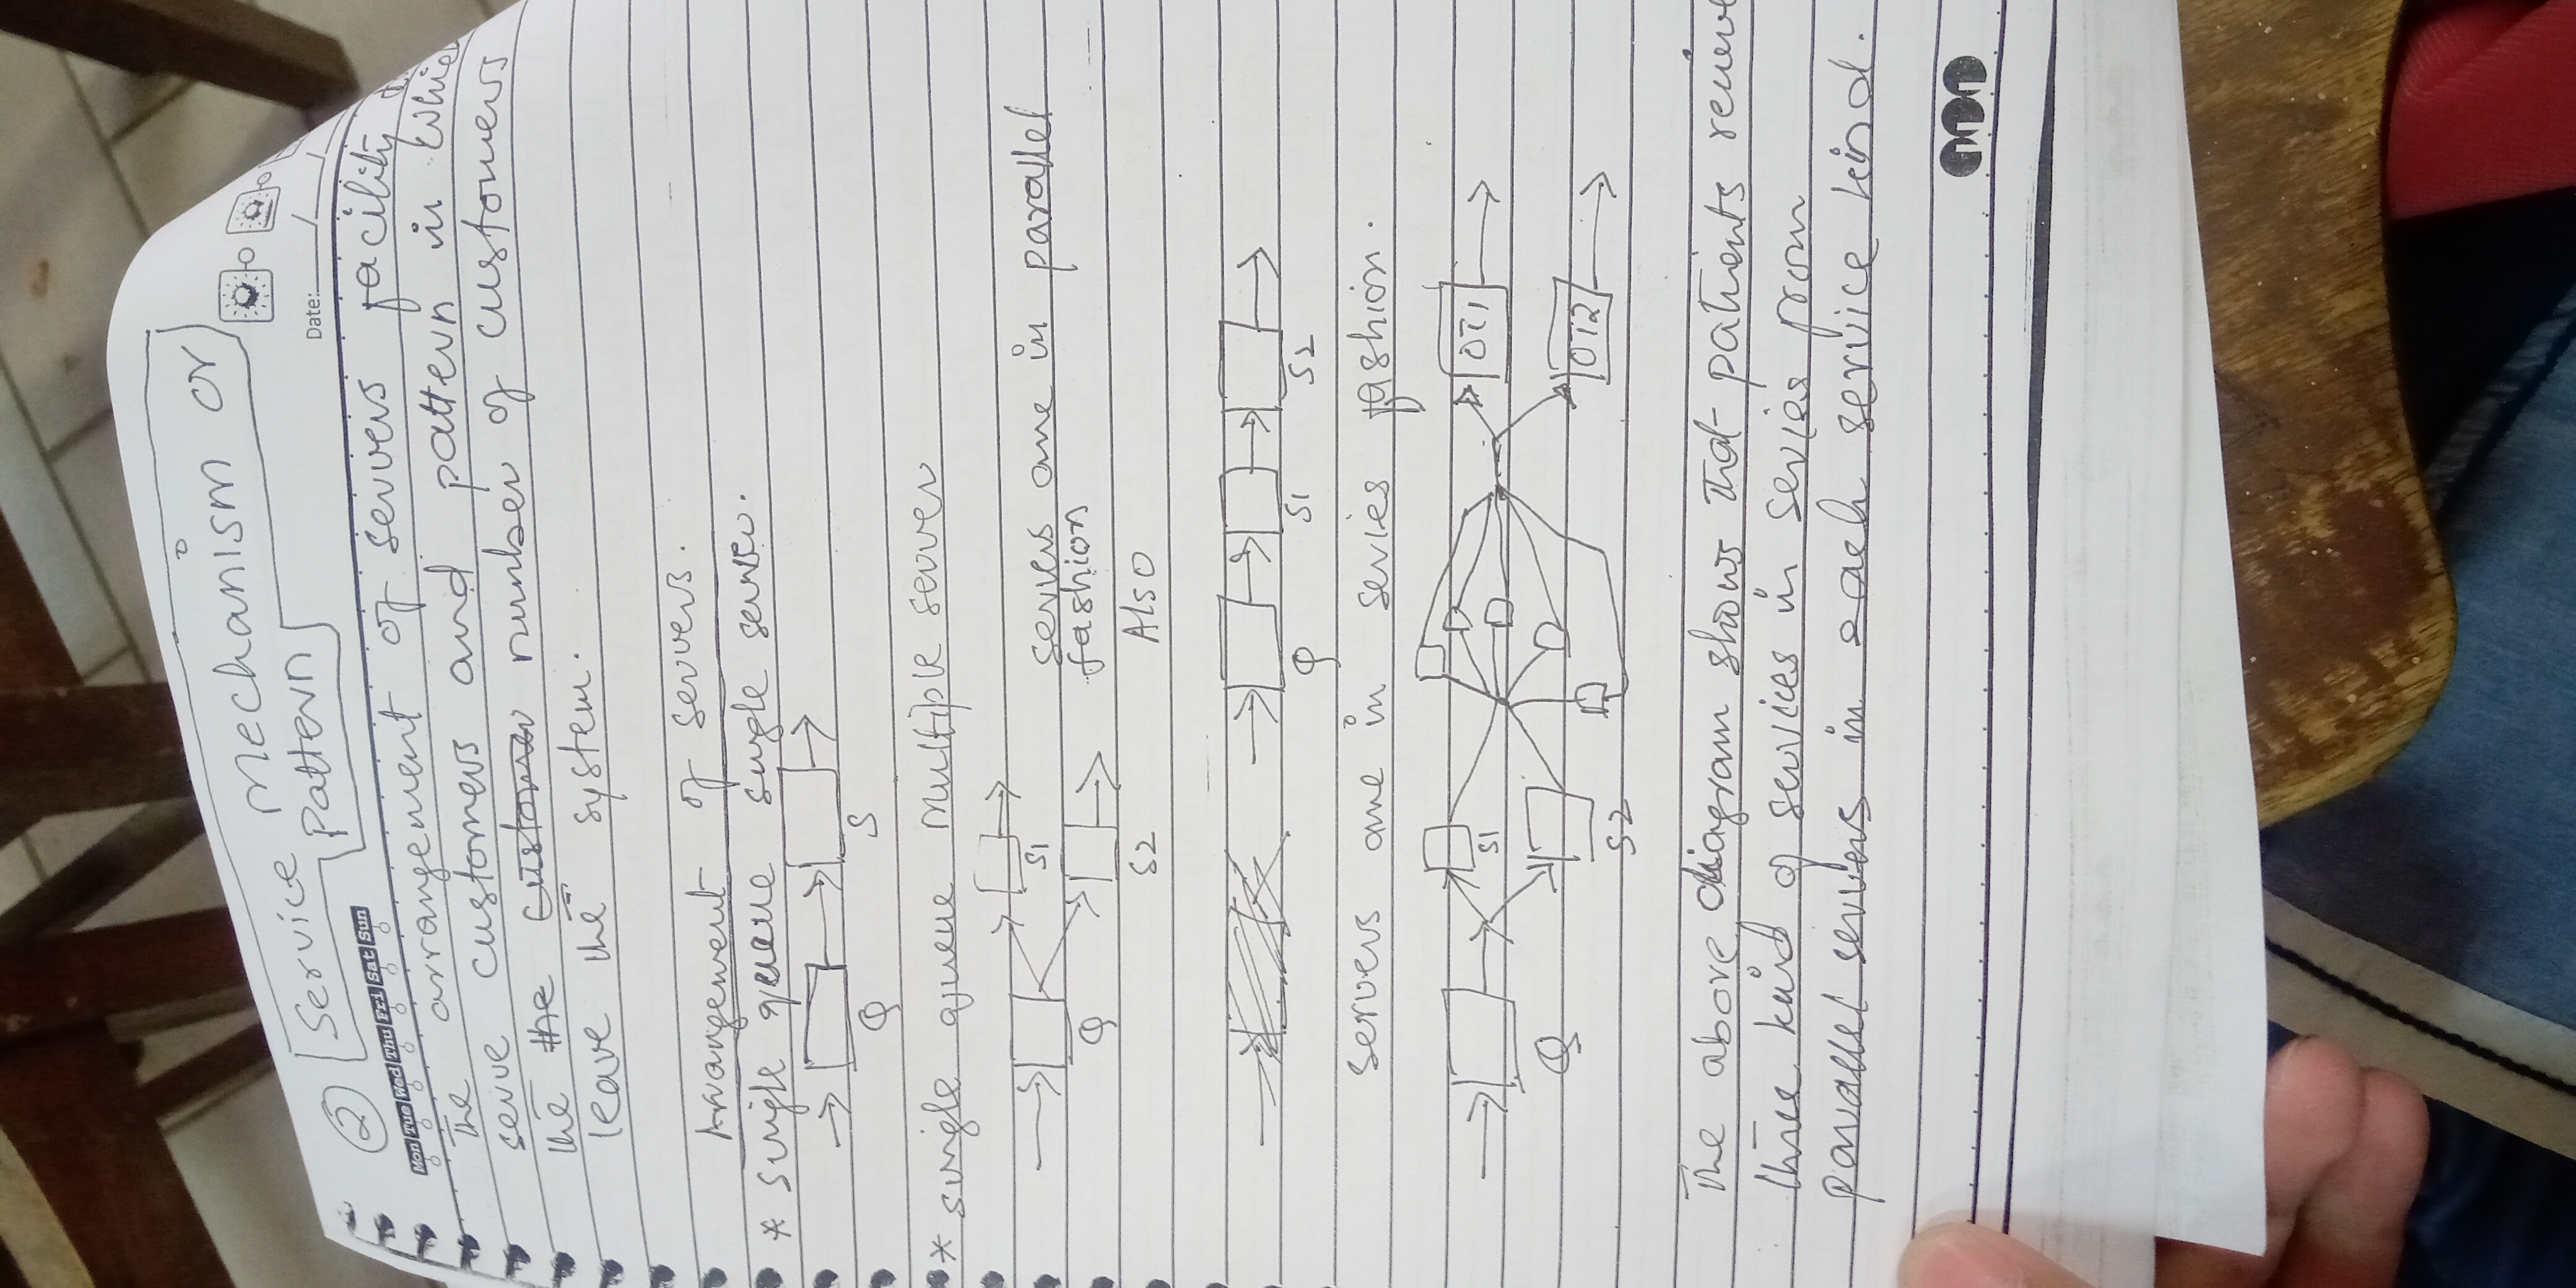 ② Service Mechanism or
Pattern
Date:
Mon Tue Wed Thu Fri Sat Sun
The arrangement of servers facility
serve customers and pattern in whic
the the customer number of customers
leave the system.
Arrangement of servers.
* single queue single server.
Q S
* single queue multiple server
S1
servers are in parallel
fashion
Q
S2
Also
Q S1 S2
servers are in series fashion.
S1
OT1
Q
OT2
S2
The above diagram shows that patients recieve
three kind of services in series from
parallel servers in each service kind.